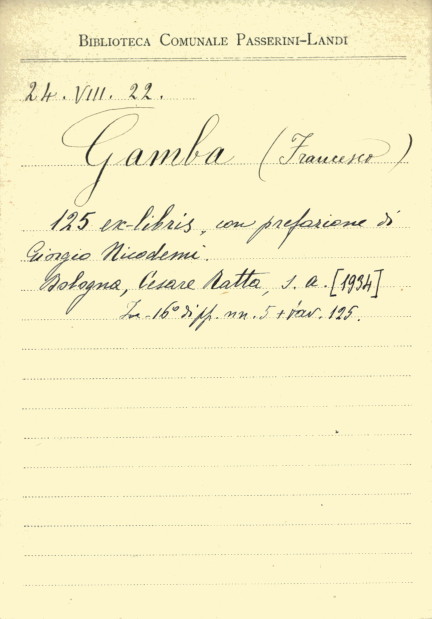 BIBLIOTECA COMUNALE PASSERINI-LANDI
24. VIII. 22.
Gamba (Francesco)
125 ex-libris, con prefazione di
Giorgio Nicodemi.
Bologna, Cesare Ratta, s. a. [1934]
In-16° di pp. nn. 5 + tav. 125.